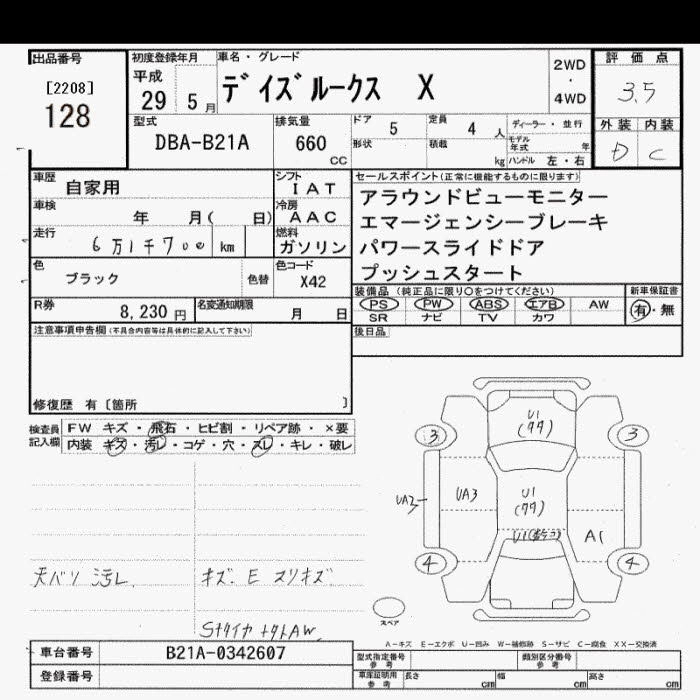 出品番号
[2208]
128
初度登録年月
平成
29 5 月
車名・グレード
デイズルークス X
2WD
・
4WD
評価点
3.5
外装 内装
D C
型式
DBA-B21A
排気量
660
cc
ドア 5
定員 4 人
形状
積載 kg
ディーラー・並行
モデル年式 年
ハンドル 左・右
車歴
自家用
シフト
IAT
車検
年 月( 日)
冷房
AAC
走行
6万1千700 km
燃料
ガソリン
色
ブラック
色替
色コード
X42
R券
8,230 円
名変通知期限
月 日
セールスポイント(正常に機能するものに限ります)
アラウンドビューモニター
エマージェンシーブレーキ
パワースライドドア
プッシュスタート
装備品(純正品に限り○をつけてください)
PS PW ABS エアB AW
SR ナビ TV カワ
新車保証書
有・無
後日品
注意事項申告欄(不具合内容等は具体的に記入して下さい)
修復歴 有〔箇所 〕
検査員記入欄
FW キズ・飛石・ヒビ割・リペア跡・×要
内装 キズ・汚レ・コゲ・穴・スレ・キレ・破レ
天バリ 汚レ
キズ. E スリキズ
U1
3 3
UA2
UA3
U1
A1
4 4
スペア
A-キズ E-エクボ U-凹み W-補修跡 S-サビ C-腐食 XX-交換済
車台番号
B21A-0342607
登録番号
型式指定番号
参考
類別区分番号
参考
車庫証明用
参考
長さ cm
幅 cm
高さ cm